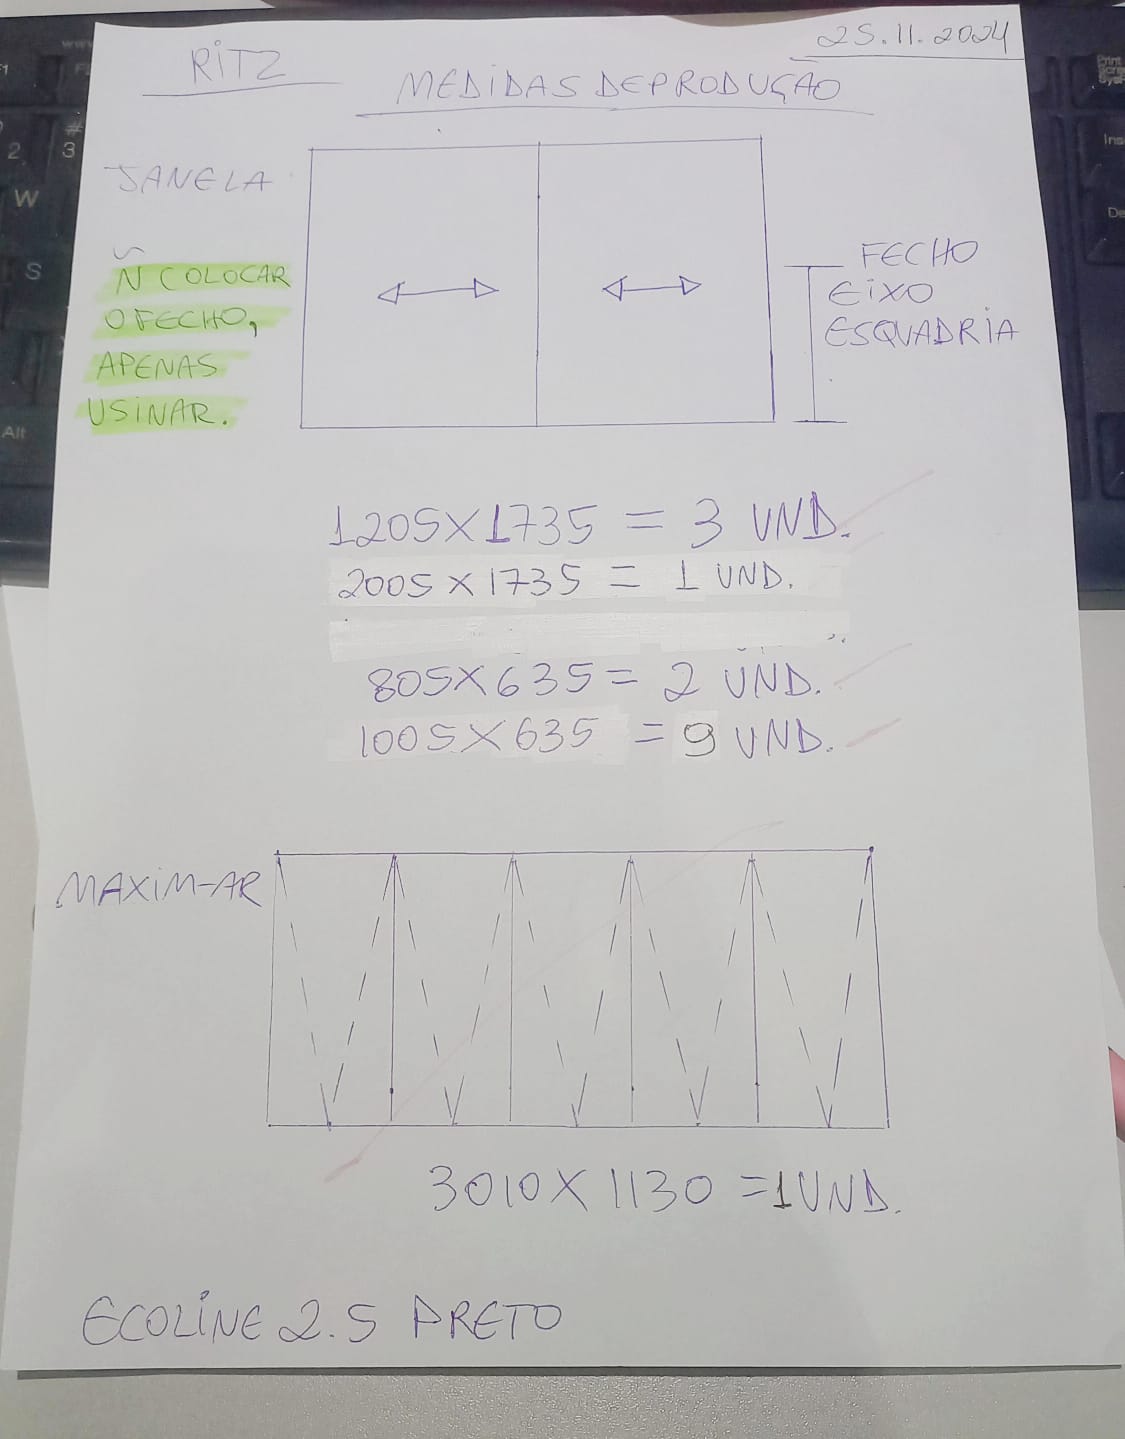 25.11.2024
RITZ
MEDIDAS DE PRODUÇÃO
JANELA
Ñ COLOCAR
O FECHO,
APENAS
USINAR.
FECHO
EIXO
ESQUADRIA
1205X1735 = 3 UND.
2005 X 1735 = 1 UND.
805X635 = 2 UND.
1005X635 = 9 UND.
MAXIM-AR
3010X1130 = 1 UND.
ECOLINE 2.5 PRETO